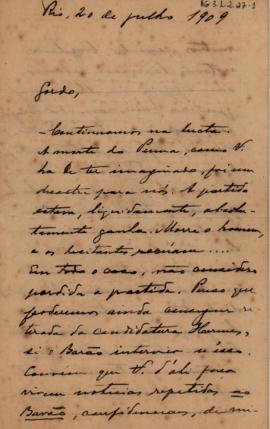 AG 3.1.2.27-1
Rio, 20 de julho 1909
Gordo,
– Continuamos na lucta.
A morte do Penna, como V.
ha de ter imaginado, foi um
desastre para nós. A partida
estava, liquidamente, absolu-
tamente ganha. Morre o homem,
e os hesitantes recúam....
Em todo o caso, não considero
perdida a partida. Penso que
poderemos ainda conseguir re-
tirada da candidatura Hermes,
si o Barão intervier n'isso.
Convém que V. d'ali
noticias repetidas ao
Barão, confidenciaes, de